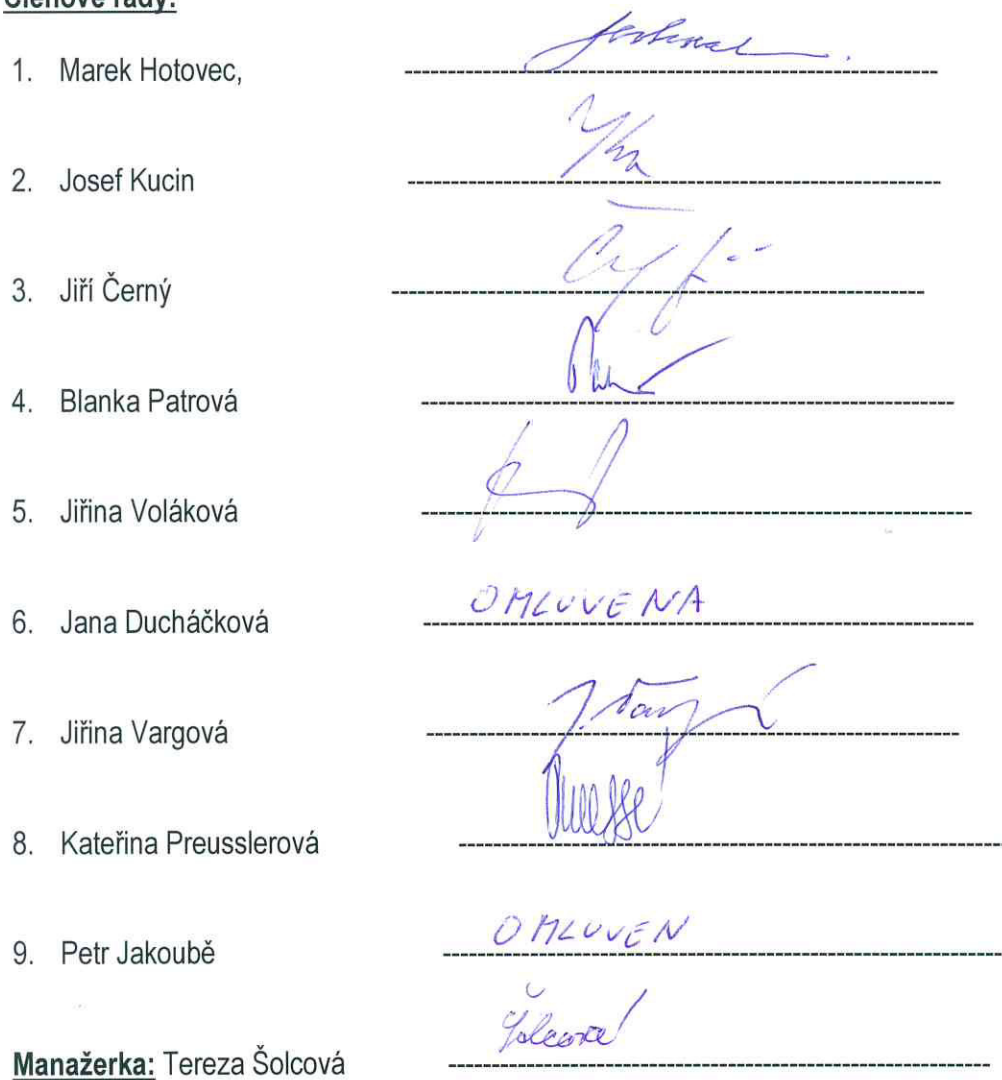 Členové rady:
1. Marek Hotovec,
2. Josef Kucin
3. Jiří Černý
4. Blanka Patrová
5. Jiřina Voláková
6. Jana Ducháčková OMLUVENA
7. Jiřina Vargová J. Vargová
8. Kateřina Preusslerová
9. Petr Jakoubě OMLUVEN
Manažerka: Tereza Šolcová Šolcová